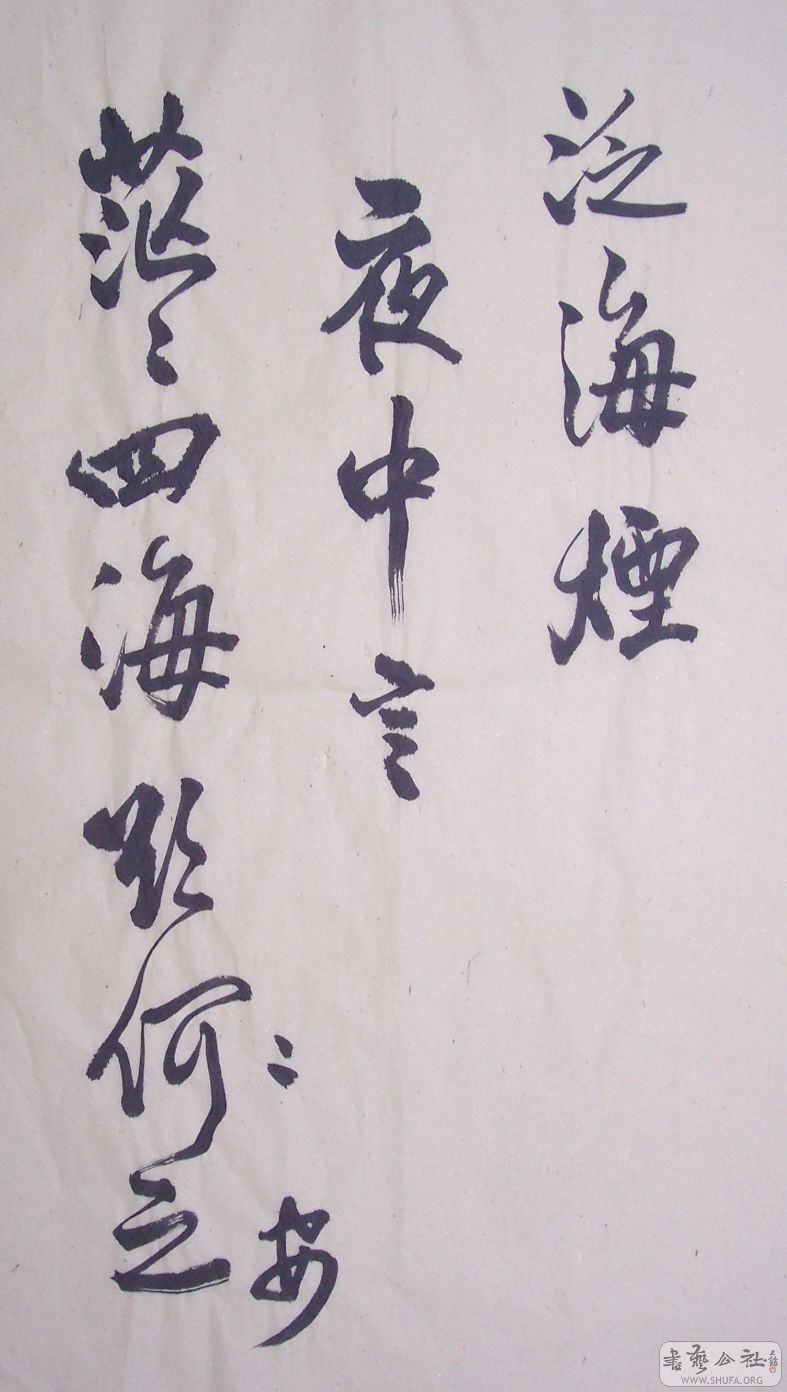 泛海煙
夜中言
茫〻四海欲何之
〻安
書藝公社
WWW.SHUFA.ORG